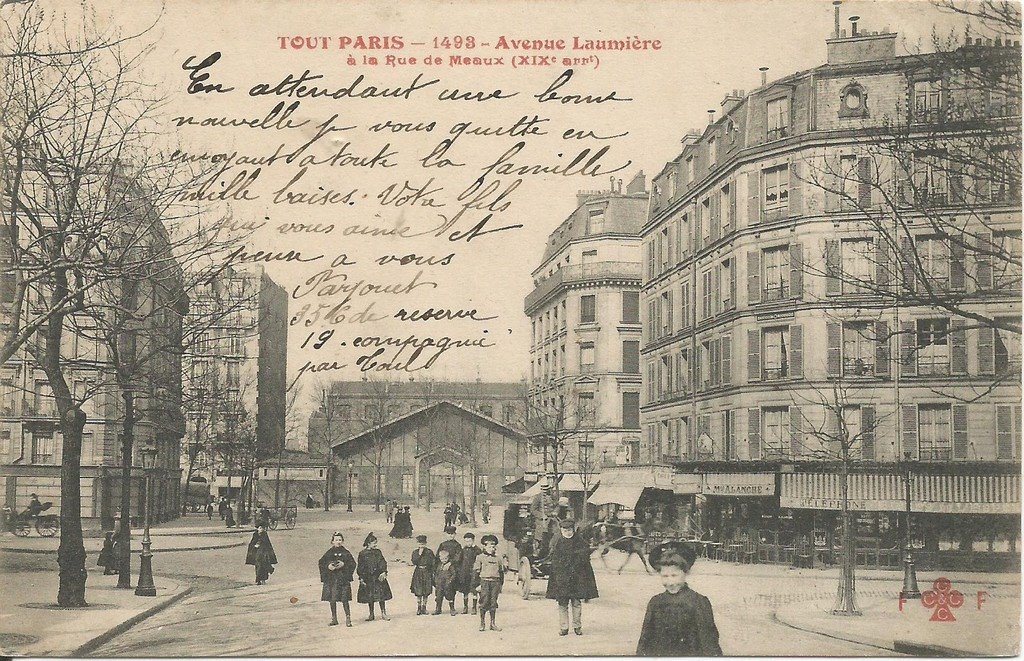 TOUT PARIS — 1493 - Avenue Laumière
à la Rue de Meaux (XIXe arrt)
En attendant une bonne
nouvelle je vous quitte en
envoyant a toute la famille
mille baises. Votre fils
qui vous aime et
pense a vous
Parjouet
de reserve
19. compagnie
par Toul
Mon BLANCHE
TELEPHONE
F F
C C C C